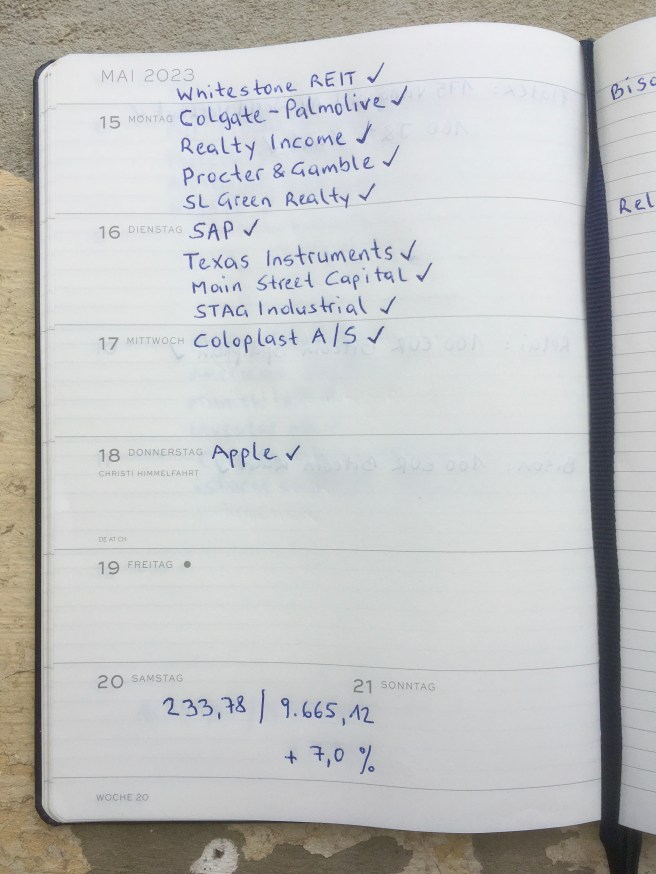 MAI 2023
Whitestone REIT ✓
15 MONTAG Colgate-Palmolive ✓
Realty Income ✓
Procter & Gamble ✓
SL Green Realty ✓
16 DIENSTAG SAP ✓
Texas Instruments ✓
Main Street Capital ✓
STAG Industrial ✓
17 MITTWOCH Coloplast A/S ✓
18 DONNERSTAG Apple ✓
CHRISTI HIMMELFAHRT
DE AT CH
19 FREITAG
20 SAMSTAG
21 SONNTAG
233,78 | 9.665,12
+ 7,0 %
WOCHE 20
Biso
Rel